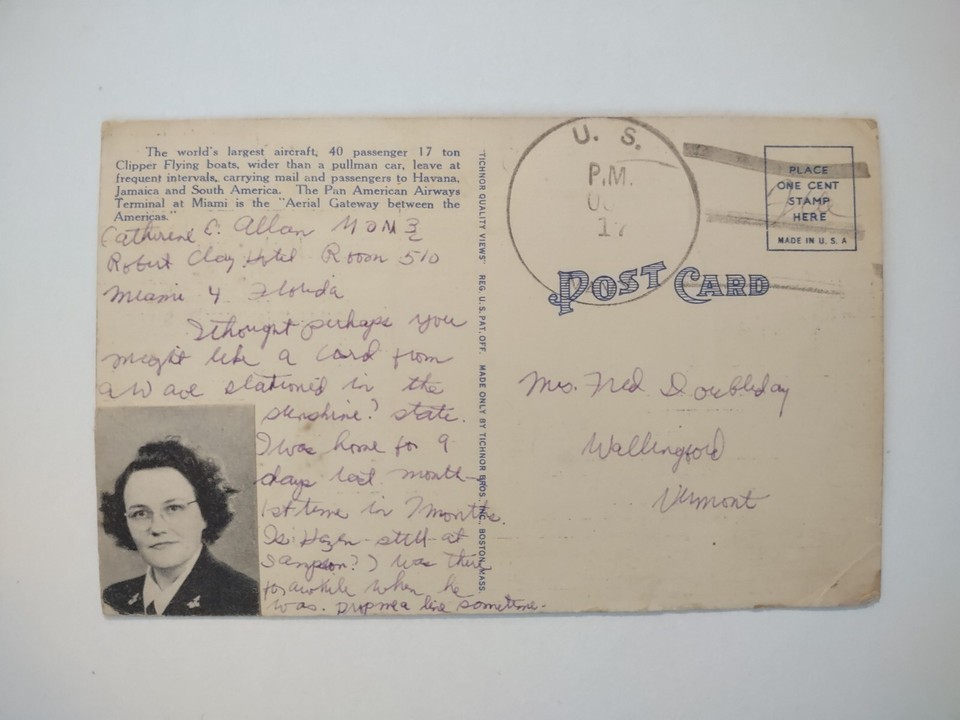 The world's largest aircraft, 40 passenger 17 ton
Clipper Flying boats, wider than a pullman car, leave at
frequent intervals, carrying mail and passengers to Havana,
Jamaica and South America. The Pan American Airways
Terminal at Miami is the "Aerial Gateway between the
Americas."
Catherine E. Allan
Robert Clay Hotel Room 510
Miami 4 Florida
I thought perhaps you
might like a card from
a Wave stationed in the
sunshine? state.
I was home for 9
days last month
1st time in 7 months.
Is Hazen still at
Sampson? I was there
for awhile when he
was. Drop me a line sometime.
"TICHNOR QUALITY VIEWS" REG. U. S. PAT. OFF. MADE ONLY BY TICHNOR BROS. INC., BOSTON, MASS.
U. S.
P.M.
17
PLACE
ONE CENT
STAMP
HERE
MADE IN U. S. A
POST CARD
Mrs. Fred Doubleday
Wallingford
Vermont